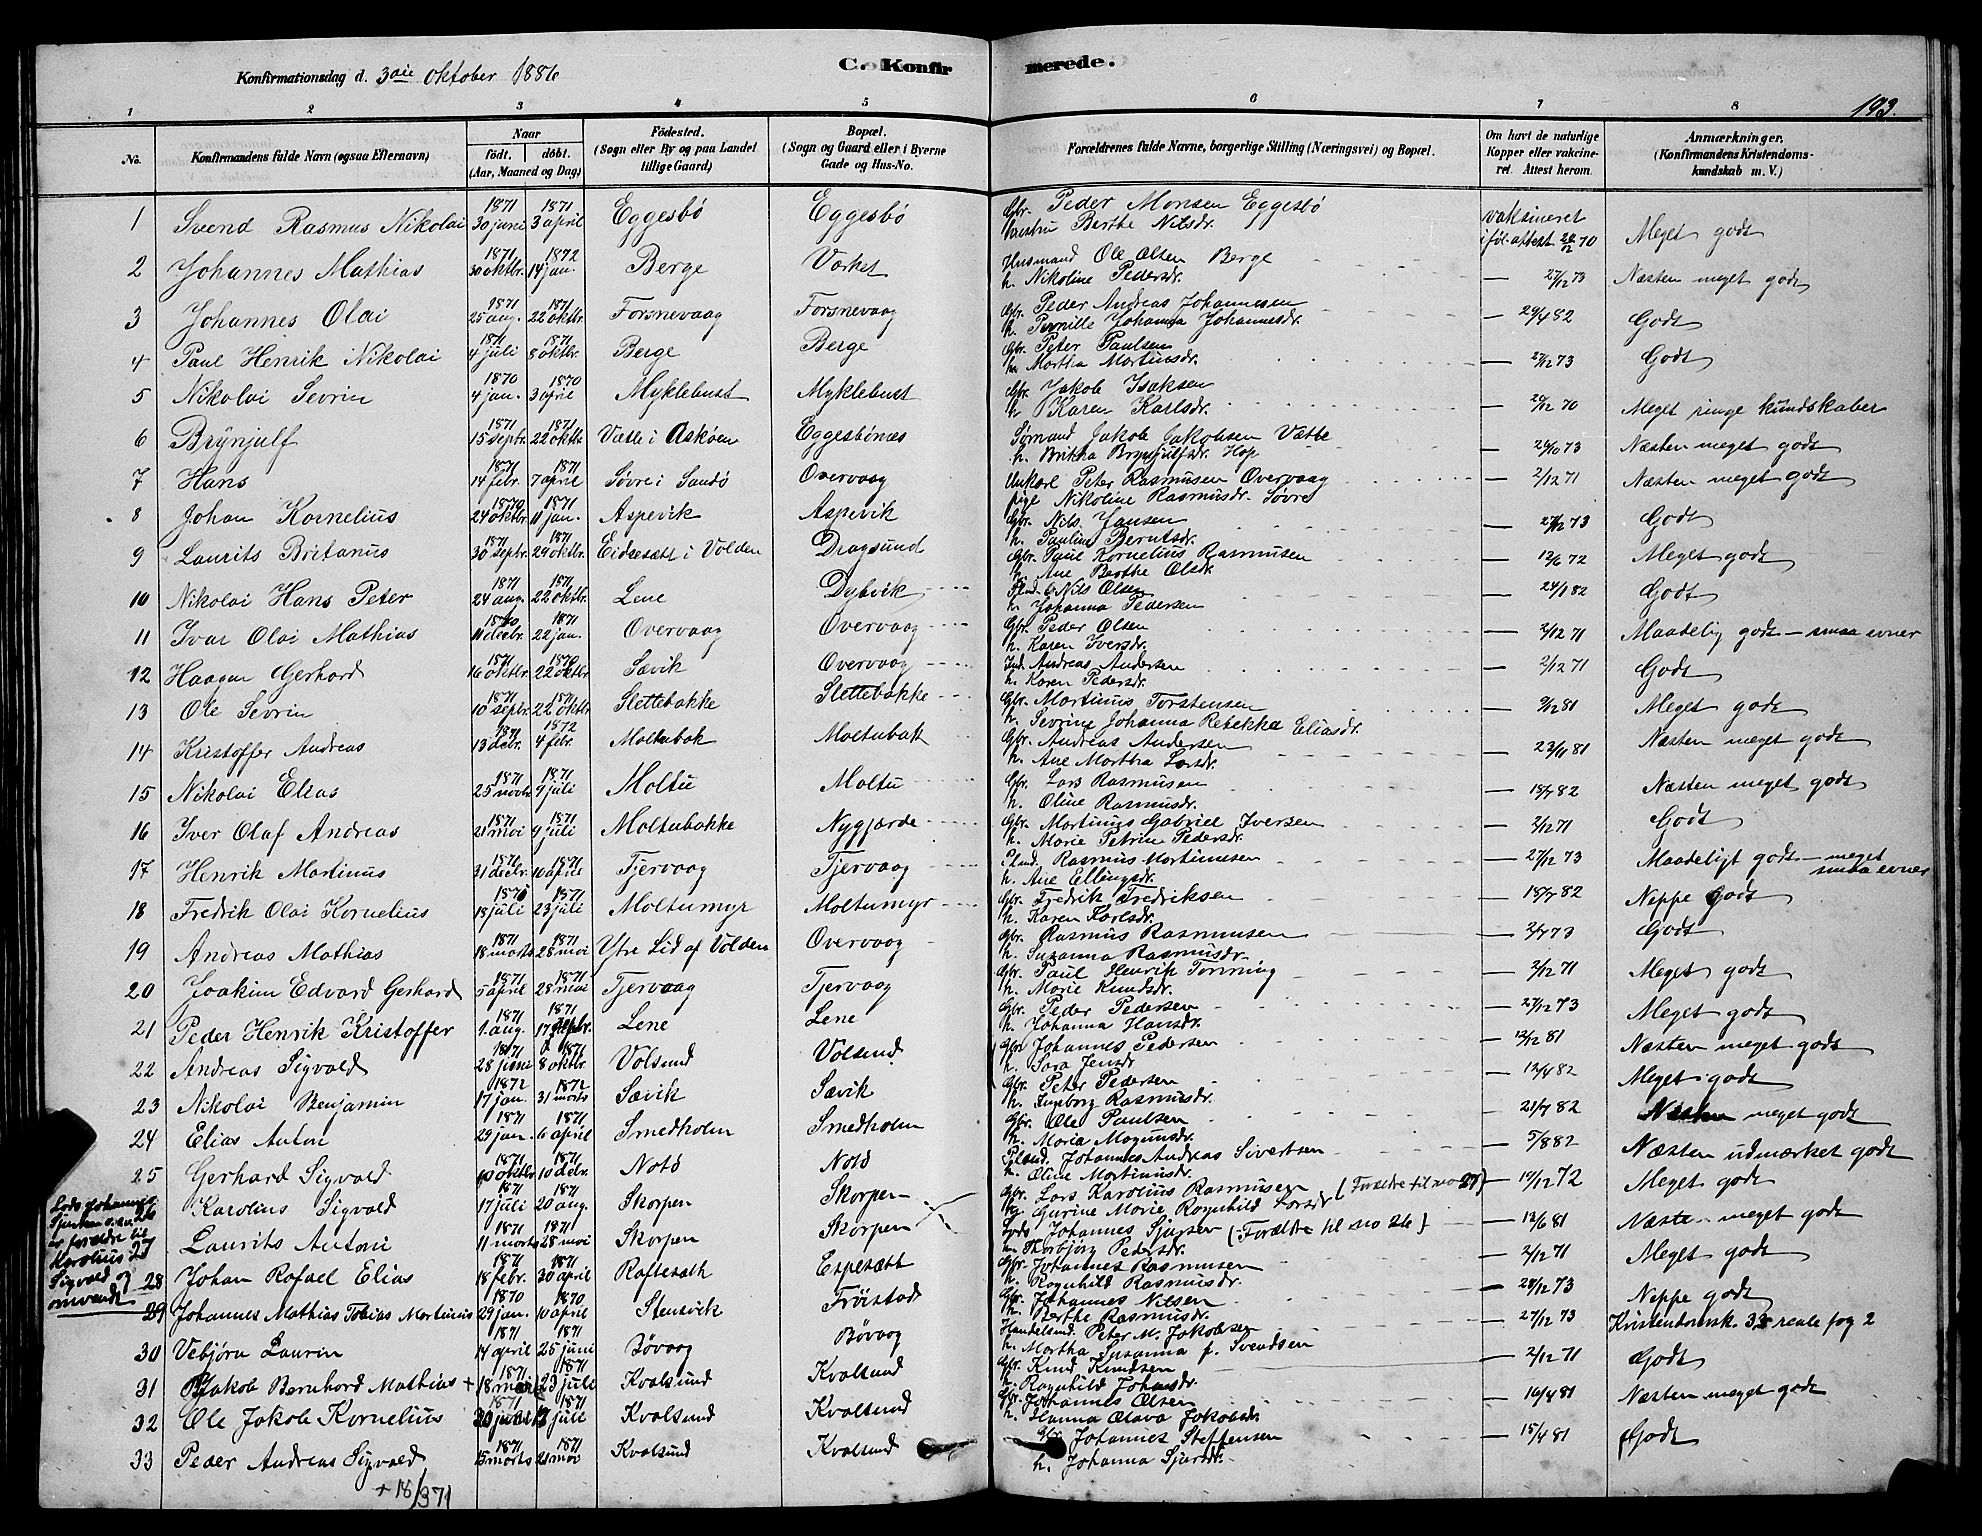 Konfirmationsdag d. 3die Oktober 1886
C. Konfirmerede.
193.
1 2 3 4 5 6 7 8
No.
Konfirmandens fulde Navn (ogsaa Efternavn)
Naar
født. døbt.
(Aar, Maaned og Dag)
Fødested.
(Sogn eller By og paa Landet
tillige Gaard)
Bopæl.
(Sogn og Gaard eller i Byerne
Gade og Hus-No.
Forældrenes fulde Navne, borgerlige Stilling (Næringsvei) og Bopæl.
Om havt de naturlige
Kopper eller vakcine-
ret. Attest herom.
Anmærkninger.
(Konfirmandens Kristendoms-
kundskab m. V.)
1 Svend Rasmus Nikolai 1871 30 juni 1871 3 april Eggesbø Eggesbø Gbr. Peder Monsen Eggesbø
hustru Berthe Nilsdr. vaksineret iføl. attest 20/12 70 Meget godt
2 Johannes Mathias 1871 30 oktbr. 1872 14 jan. Berge Vorket Husmand Ole Olsen Berge
h. Nikoline Pedersdr. — 27/12 73 Næsten meget godt
3 Johannes Olai 1871 25 aug. 1871 22 oktbr. Forsnevaag Forsnevaag Gbr. Peder Andreas Johannesen
h. Pernille Johanna Johannesdr. — 29/4 82 Godt
4 Paul Henrik Nikolai 1871 4 juli 1871 8 oktbr. Berge Berge Gbr. Peter Paulsen
h. Martha Martinsdr. — 27/12 73 Godt
5 Nikolai Sevrin 1870 4 jan. 1870 3 april Myklebust Myklebust Gbr. Jakob Isaksen
h. Karen Karlsdr. — 20/12 70 Meget ringe kundskaber
6 Brynjulf 1871 15 septbr. 1871 22 oktbr. Vætle i Askøen Eggesbønæs Sømand Jakob Jakobsen Vætle
h. Britha Brynjulfsdr. Hop — 29/10 73 Næsten meget godt
7 Hans 1871 14 febr. 1871 7 april Søvre i Sandø Overvaag Unkarl Peter Rasmusen Overvaag
pige Nikoline Rasmusdr. Søvre — 2/12 71 Næsten meget godt
8 Johan Kornelius 1870 24 oktbr. 1871 11 jan. Aspevik Aspevik Gbr. Nils Jansen
h. Pauline Berntsdr. — 27/12 73 Godt
9 Laurits Britanus 1871 30 septbr. 1871 29 oktbr. Eidesætt i Volden Dragsund Gbr. Paul Kornelius Rasmusen
h. Ane Berthe Olsdr. — 12/6 72 Meget godt
10 Nikolai Hans Peter 1871 24 aug. 1871 22 oktbr. Lene Dybvik Nils Olsen
h. Johanna Pedersen — 24/1 82 Godt
11 Ivar Olai Mathias 1870 11 decbr. 1871 22 jan. Overvaag Overvaag Gbr. Peder Olsen
h. Karen Iversdr. — 2/12 71 Maadelig godt — smaa evner
12 Haagen Gerhard 1871 16 oktbr. 1871 22 oktbr. Sævik Overvaag Ind. Andreas Andersen
h. Karen Pedersdr. — 2/12 71 Godt
13 Ole Sevrin 1871 10 septbr. 1871 22 oktbr. Slettebakke Slettebakke Gbr. Martinus Torstensen
h. Sevrine Johanna Rebekka Eliasdr. — 9/12 81 Meget godt
14 Kristoffer Andreas 1871 13 debr. 1872 4 febr. Moltubak Moltubakk Gbr. Andreas Andersen
h. Ane Martha Larsdr. — 23/4 81 Næsten meget godt
15 Nikolai Elias 1871 25 novbr. 1871 9 juli Moltu Moltu Gbr. Lars Rasmusen
h. Oline Rasmusdr. — 18/7 82 Næsten meget godt
16 Iver Olaf Andreas 1871 21 mai 1871 9 juli Moltubakke Nygjærde Gbr. Martinus Gabriel Iversen
h. Marie Petrine Pedersdr. — 2/12 71 Godt
17 Henrik Martinus 1870 31 decbr. 1871 10 april Tjervaag Tjervaag Rasmus Martinusen
h. Ane Ellingsdr. — 27/12 73 Maadeligt godt — meget
smaa evner
18 Fredrik Olai Kornelius 1871 18 juli 1871 23 juli Moltumyr Moltumyr Gbr. Fredrik Fredriksen
h. Karen Karlsdr. — 18/7 82 Neppe godt
19 Andreas Mathias 1871 18 marts 1871 28 mai Ytre Lid af Volden Overvaag Gbr. Rasmus Rasmusen
h. Susanna Rasmusdr. — 2/4 73 Godt
20 Joakim Edvard Gerhard 1871 5 april 1871 28 mai Tjervaag Tjervaag Gbr. Paul Henrik Tonning
h. Marie Knudsdr. — 2/12 71 Meget godt
21 Peder Henrik Kristoffer 1871 1. aug. 1871 17 septbr. Lene Lene Gbr. Peder Pedersen
h. Johanna Hansdr. — 27/12 73 Meget godt
22 Andreas Sigvald 1871 28 juni 1871 8 oktbr. Volsund Volsund Gbr. Johannes Pedersen
h. Sara Jensdr. — 12/12 81 Næsten meget godt
23 Nikolai Benjamin 1872 17 jan. 1872 31 marts Sævik Sævik Gbr. Peter Pedersen
h. Ingeborg Rasmusdr. — 12/4 82 Meget godt
24 Elias Anton 1871 29 jan. 1871 6 april Smedholm Smedholm Gbr. Ole Paulsen
h. Maria Magnusdr. — 21/7 82 Næsten meget godt
25 Gerhard Sigvald 1871 10 oktbr. 1871 10 debr. Notø Notø Johannes Andreas Sivertsen
h. Oline Martinusdr. — 5/8 82 Næsten udmærket godt
Karolius Sigvald 1871 17 juli 1871 20 aug. Skorpen Skorpen Gbr. Lars Karolius Rasmusen (Forældre til no 27)
h. Gurine Marie Ragnhild Larsdr. — 19/12 72 Meget godt
Laurits Antoni 1871 11 marts 1871 28 mai Skorpen Skorpen Lods Johannes Sjursen (Forældre til no 26)
h. Thorbjørg Pedersdr. — 13/6 81 Næsten meget godt
Lods Johannes
Sjursen o. h. no 26
er forældre til
Karolius 27
Sigvald og
omvendt
28 Johan Rafael Elias 1871 18 febr. 1871 30 april Raftesæth Espesætt Gbr. Johannes Rasmusen
h. Ragnhild Rasmusdr. — 2/12 71 Meget godt
29 Johannes Mathias Tobias Martinius 1870 29 jan. 1870 10 april Stensvik Frøistad Gbr. Johannes Nilsen
h. Berthe Rasmusdr. — 28/12 73 Neppe godt
30 Vebjørn Laurin 1871 14 april 1871 25 juni Bøvaag Bøvaag Handelsmd. Peter M. Jakobsen
h. Martha Susanna f. Svendsen — 27/12 73 Kristendomsk. 3,5 reale fag 2
31 Jakob Bernhard Mathias + 1871 18 mai 1871 23 juli Kvalsund Kvalsund Gbr. Knud Knudsen
h. Ragnhild Johansdr. — 2/12 71 Godt
32 Ole Jakob Kornelius 1871 1871 juli Kvalsund Kvalsund Gbr. Johannes Olsen
h. Hanna Olava Jakobsdr. — 16/4 81 Næsten meget godt
33 Peder Andreas Sigvald 1871 15 marts 1871 21 mai Kvalsund Kvalsund Gbr. Johannes Steffensen
h. Johanna Sjursdr. — 15/4 81 Godt
+ 18/3 71